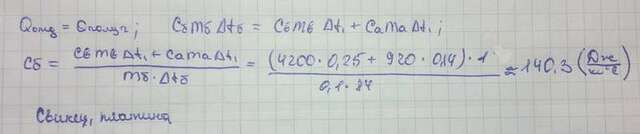 Qотд = Qполуч; Cб mб Δtб = Cв mв Δt₁ + Cа mа Δt₁;
Cб = (Cв mв Δt₁ + Cа mа Δt₁) / (mб · Δtб) = ((4200 · 0,25 + 920 · 0,14) · 1) / (0,1 · 84) ≈ 140,3 (Дж/кг·°C)
Свинец, платина